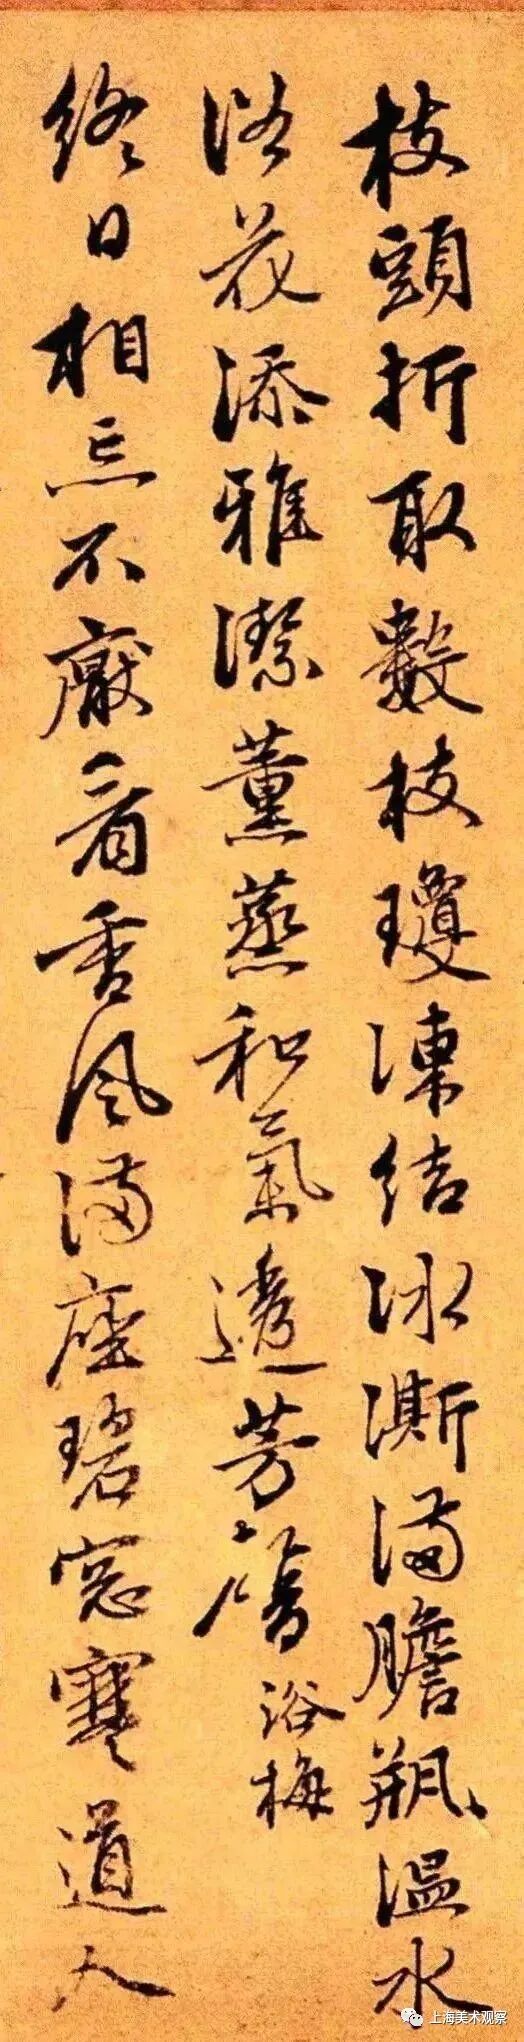 枝頭折取數枝瓊凍結冰澌滿膽瓶溫水
浴花添雅潔薰蒸和氣透芳馨浴梅
終日相忘不厭看香風滿座碧窓寒道人
上海美术观察